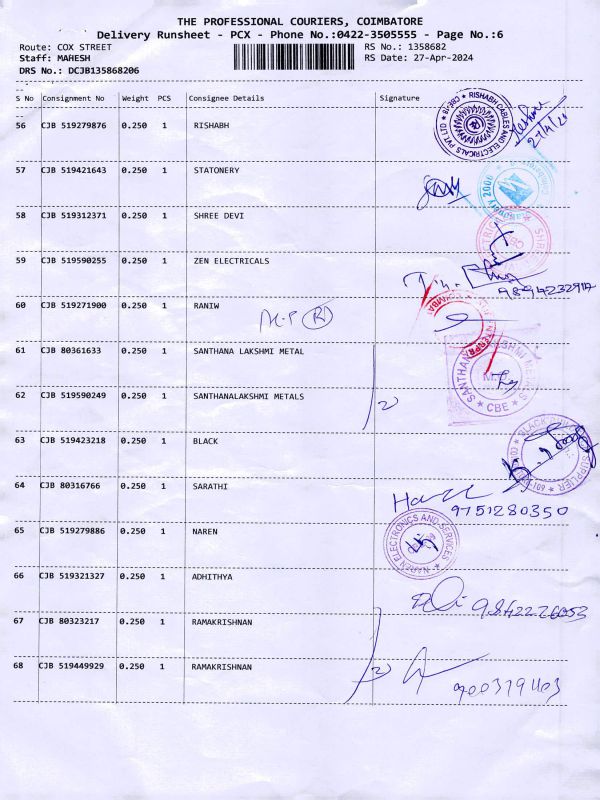 THE PROFESSIONAL COURIERS, COIMBATORE
Delivery Runsheet - PCX - Phone No.:0422-3505555 - Page No.:6
Route: COX STREET RS No.: 1358682
Staff: MAHESH RS Date: 27-Apr-2024
DRS No.: DCJB135868206
S No Consignment No Weight PCS Consignee Details Signature
56 CJB 519279876 0.250 1 RISHABH
RISHABH CABLES AND ELECTRICALS PVT LTD CBE-18
57 CJB 519421643 0.250 1 STATONERY
58 CJB 519312371 0.250 1 SHREE DEVI
59 CJB 519590255 0.250 1 ZEN ELECTRICALS
60 CJB 519271900 0.250 1 RANIW
61 CJB 80361633 0.250 1 SANTHANA LAKSHMI METAL
62 CJB 519590249 0.250 1 SANTHANALAKSHMI METALS
CBE
63 CJB 519423218 0.250 1 BLACK
64 CJB 80316766 0.250 1 SARATHI
9751280350
65 CJB 519279886 0.250 1 NAREN
NAREN ELECTRONICS AND SERVICES
66 CJB 519321327 0.250 1 ADHITHYA
67 CJB 80323217 0.250 1 RAMAKRISHNAN
68 CJB 519449929 0.250 1 RAMAKRISHNAN